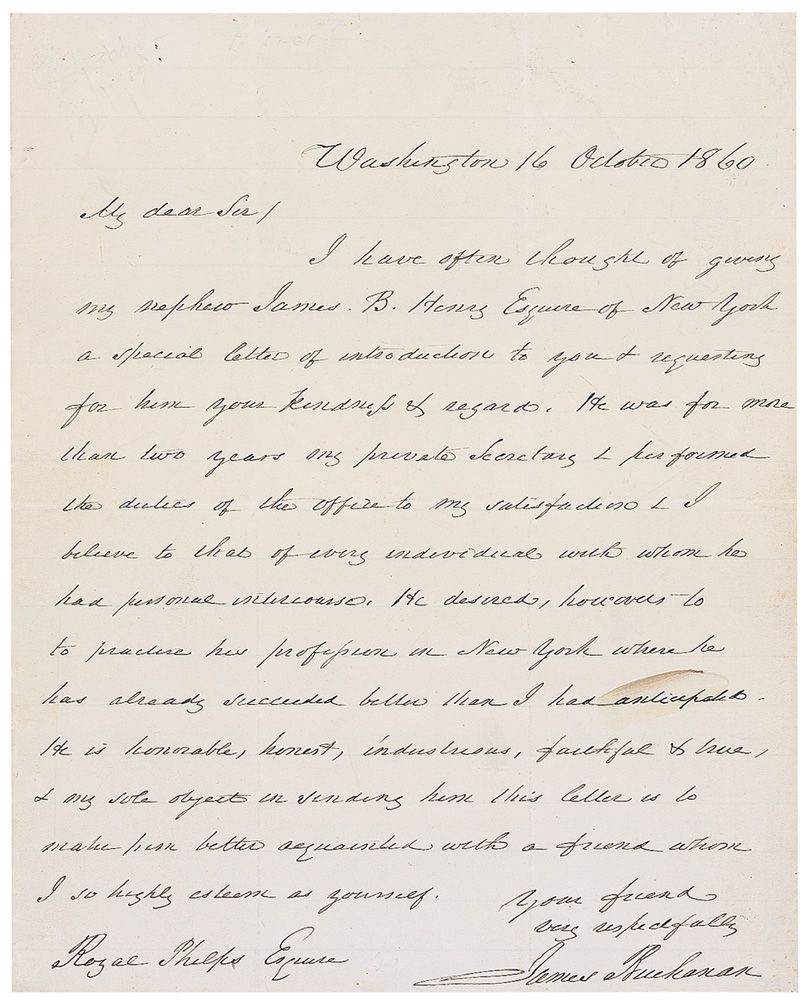 Washington 16 October 1860
My dear Sir/
I have often thought of giving
my nephew James. B. Henry Esquire of New York
a special letter of introduction to you & requesting
for him your kindness & regard. He was for more
than two years my private Secretary & performed
the duties of the office to my satisfaction & I
believe to that of every individual with whom he
had personal intercourse. He desired, however to
to practice his profession in New York where he
has already succeeded better than I had anticipated.
He is honorable, honest, industrious, faithful & true,
& my sole object in sending him this letter is to
make him better acquainted with a friend whom
I so highly esteem as yourself.
Your friend
very respectfully
James Buchanan
Royal Phelps Esquire